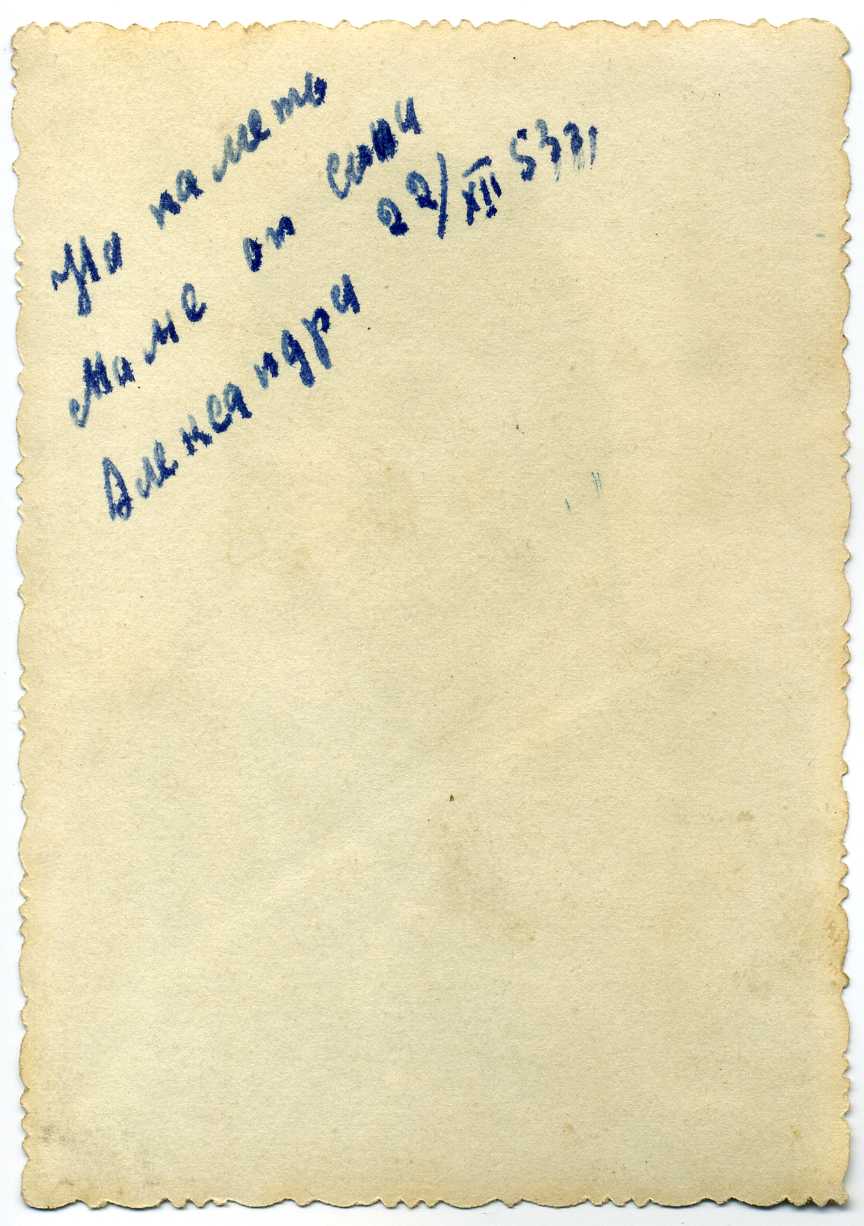 На паметь
Маме от сына
Александра 22/XII 53г